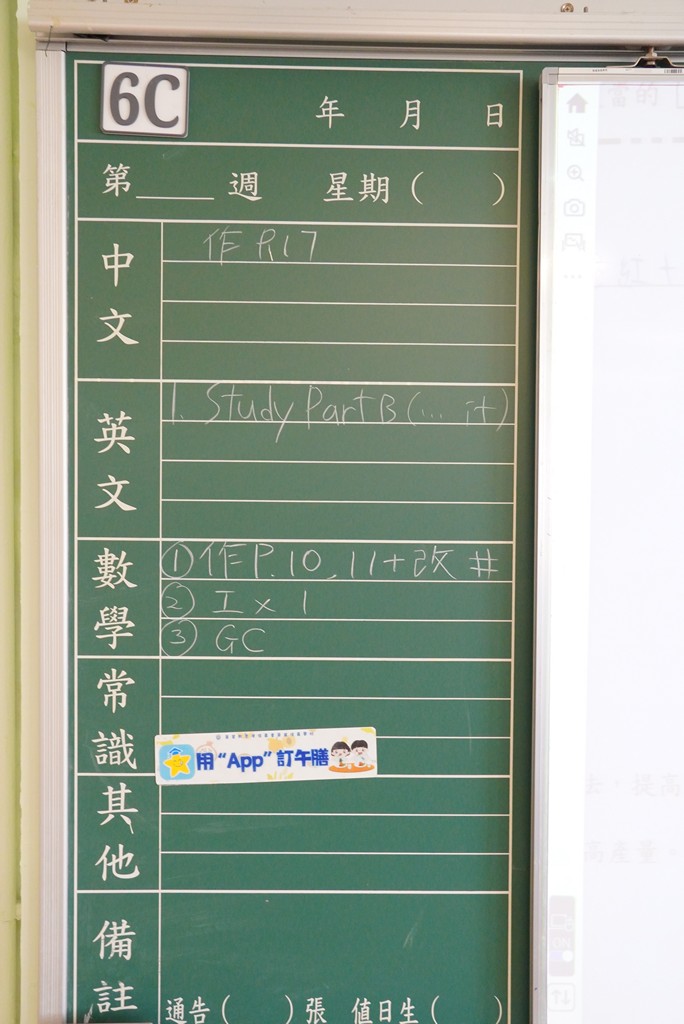 6C
年 月 日
第____週 星期( )
中文
作 P.17
英文
1. Study Part B (... it)
數學
①作P.10, 11+改 #
② 工 x 1
③ GC
常識
用“App”訂午膳
其他
備註
通告( )張 值日生( )
當的
紅十
法，提高
高產量。